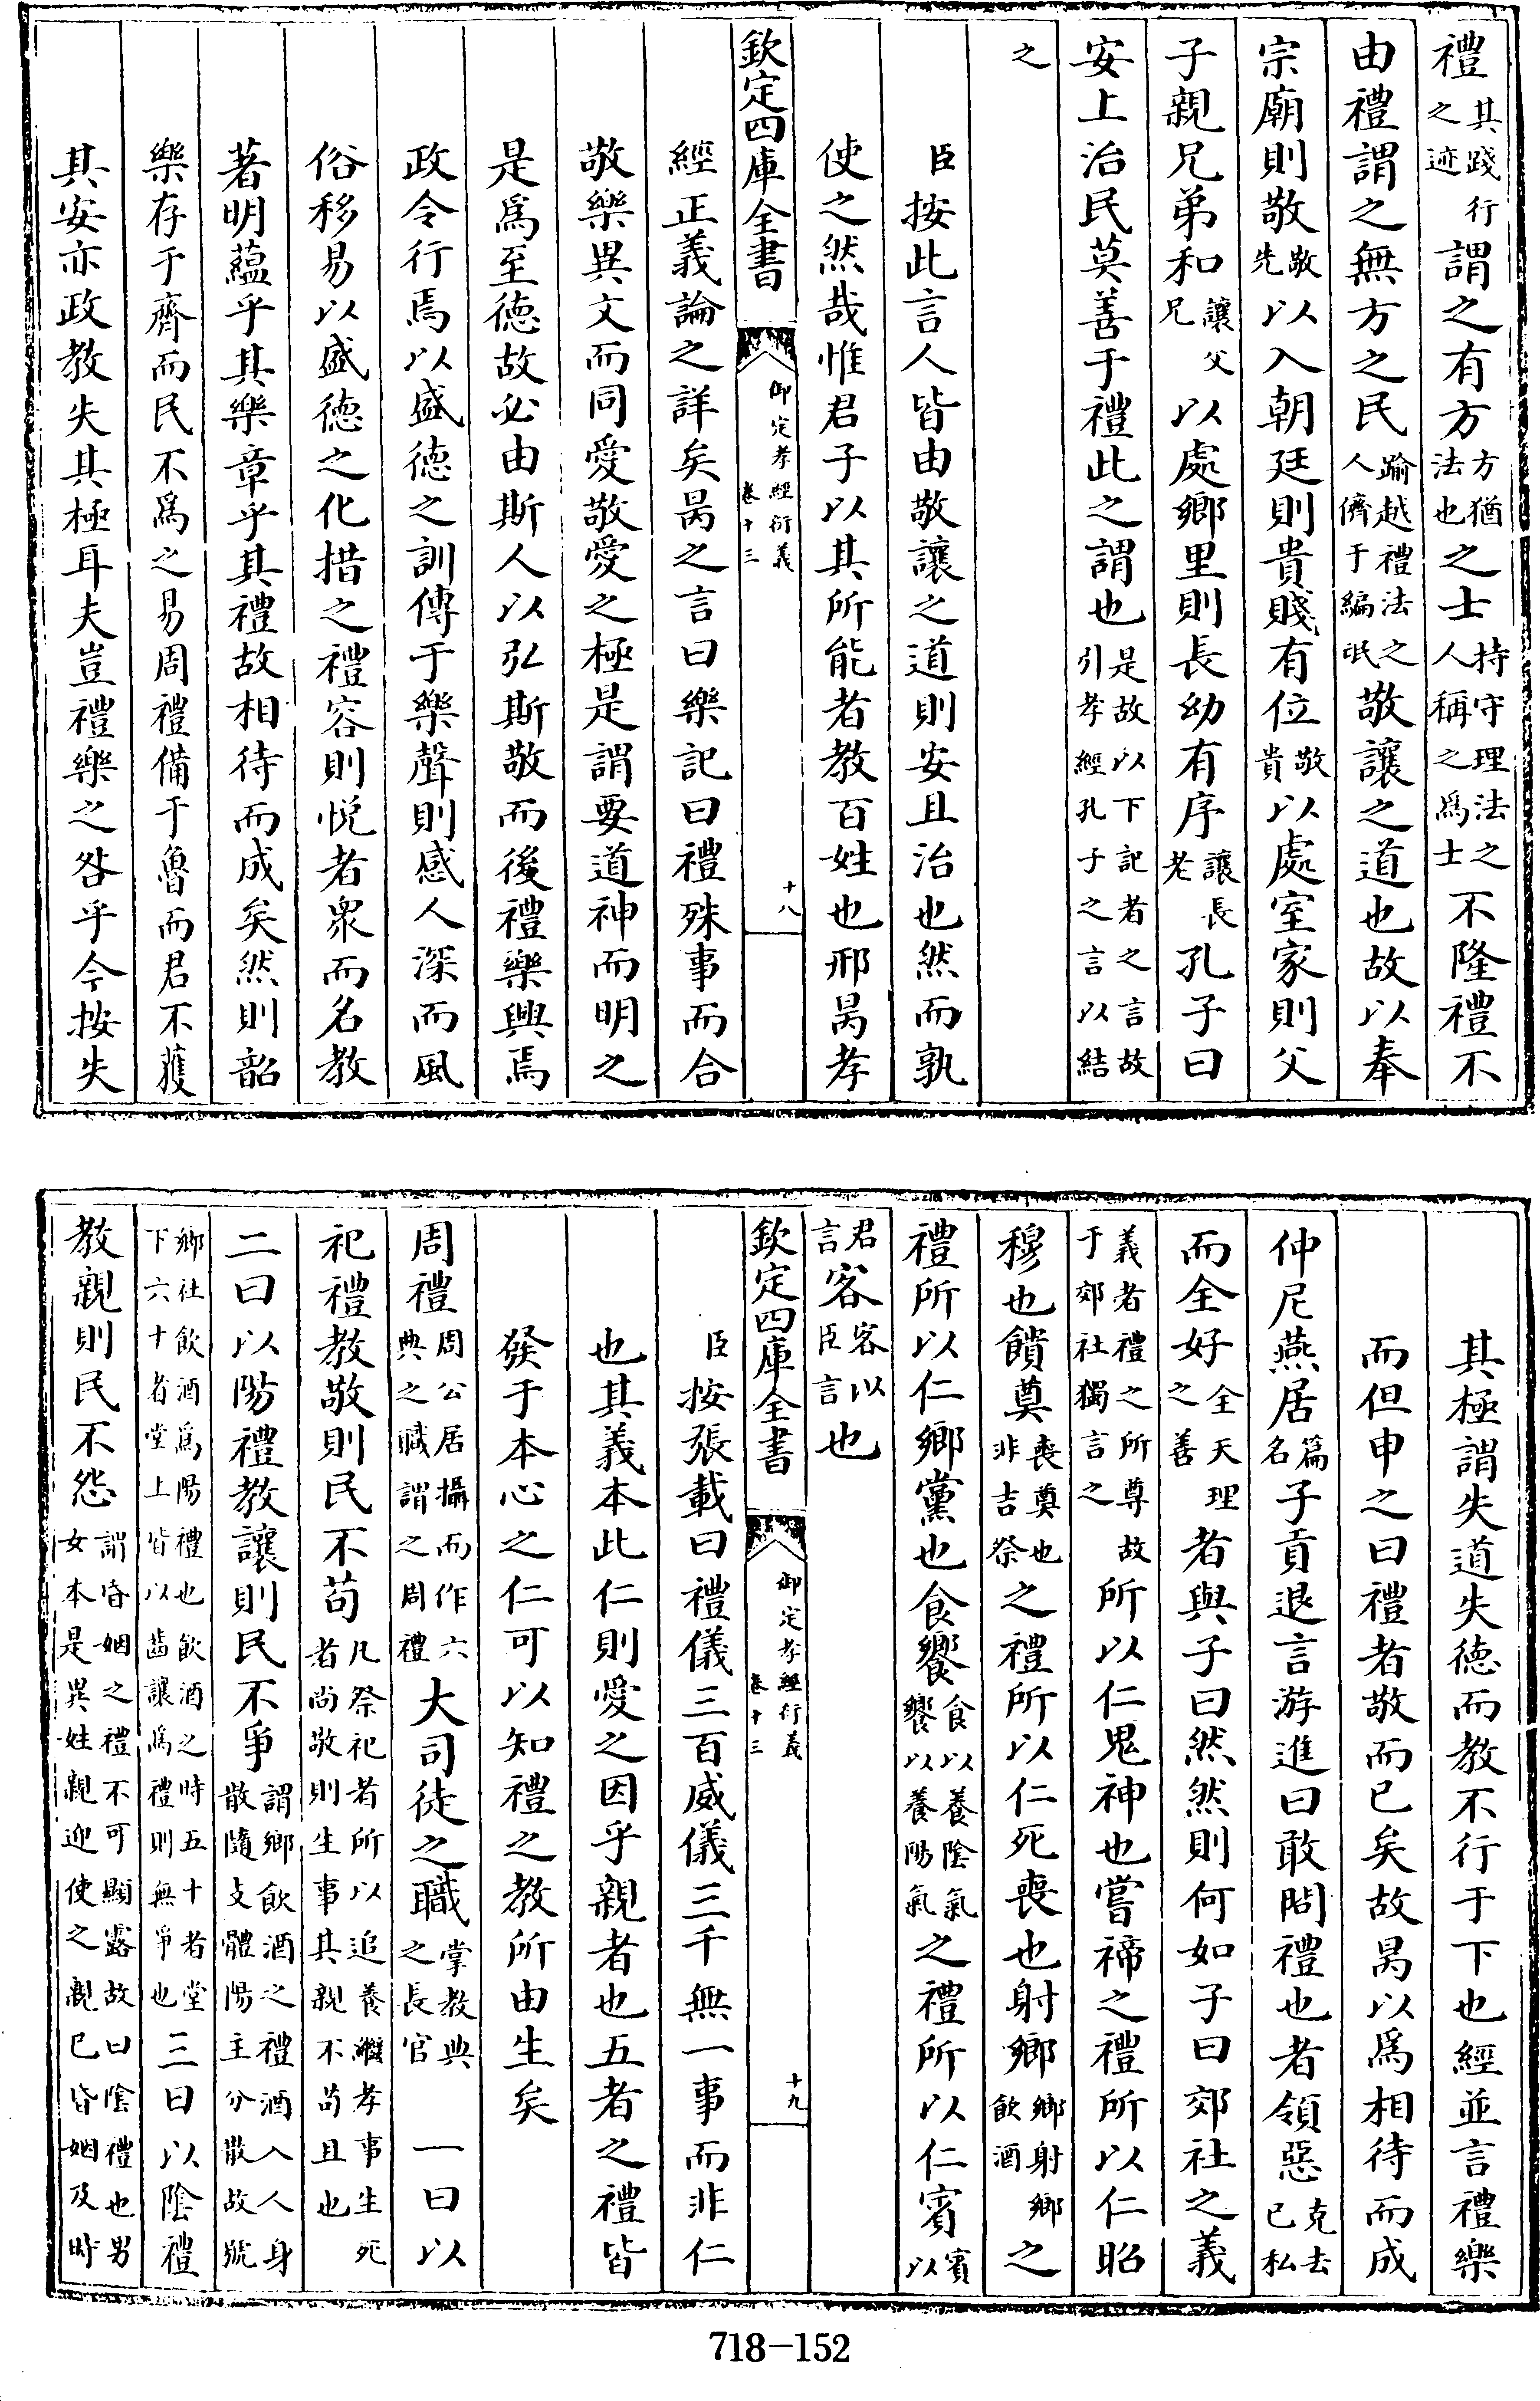 禮其踐行之迹謂之有方方猶法也之士持守理法之人稱之爲士不隆禮不
由禮謂之無方之民踰越禮法之人儕于編氓敬讓之道也故以奉
宗廟則敬敬先以入朝廷則貴賤有位敬貴以處室家則父
子親兄弟和讓父兄以處鄉里則長幼有序讓長老孔子曰
安上治民莫善于禮此之謂也是故以下記者之言故引孝經孔子之言以結
之
臣按此言人皆由敬讓之道則安且治也然而孰
使之然哉惟君子以其所能者教百姓也邢昺孝
欽定四庫全書 御定孝經衍義卷十三 十八
經正義論之詳矣昺之言曰樂記曰禮殊事而合
敬樂異文而同愛敬愛之極是謂要道神而明之
是爲至德故必由斯人以弘斯敬而後禮樂興焉
政令行焉以盛德之訓傳于樂聲則感人深而風
俗移易以盛德之化措之禮容則悅者衆而名教
著明蘊乎其樂章乎其禮故相待而成矣然則韶
樂存于齊而民不爲之易周禮備于魯而君不獲
其安亦政教失其極耳夫豈禮樂之咎乎今按失
其極謂失道失德而教不行于下也經並言禮樂
而但申之曰禮者敬而已矣故昺以爲相待而成
仲尼燕居篇名子貢退言游進曰敢問禮也者領惡克去己私
而全好全天理之善者與子曰然然則何如子曰郊社之義
義者禮之所尊故于郊社獨言之所以仁鬼神也嘗禘之禮所以仁昭
穆也饋奠喪奠也非吉祭之禮所以仁死喪也射鄉鄉射鄉飲酒之
禮所以仁鄉黨也食饗食以養陰氣饗以養陽氣之禮所以仁賓賓以
君言客客以臣言也
欽定四庫全書 御定孝經衍義卷十三 十九
臣按張載曰禮儀三百威儀三千無一事而非仁
也其義本此仁則愛之因乎親者也五者之禮皆
發于本心之仁可以知禮之教所由生矣
周禮周公居攝而作六典之職謂之周禮大司徒之職掌教典之長官一曰以
祀禮教敬則民不苟凡祭祀者所以追養繼孝事生死者尚敬則生事其親不苟且也
二曰以陽禮教讓則民不爭謂鄉飲酒之禮酒入人身散隨支體陽主分散故號
鄉社飲酒爲陽禮也飲酒之時五十者堂下六十者堂上皆以齒讓爲禮則無爭也三曰以陰禮
教親則民不怨謂昏姻之禮不可顯露故曰陰禮也男女本是異姓親迎使之親已昏姻及時
718-152